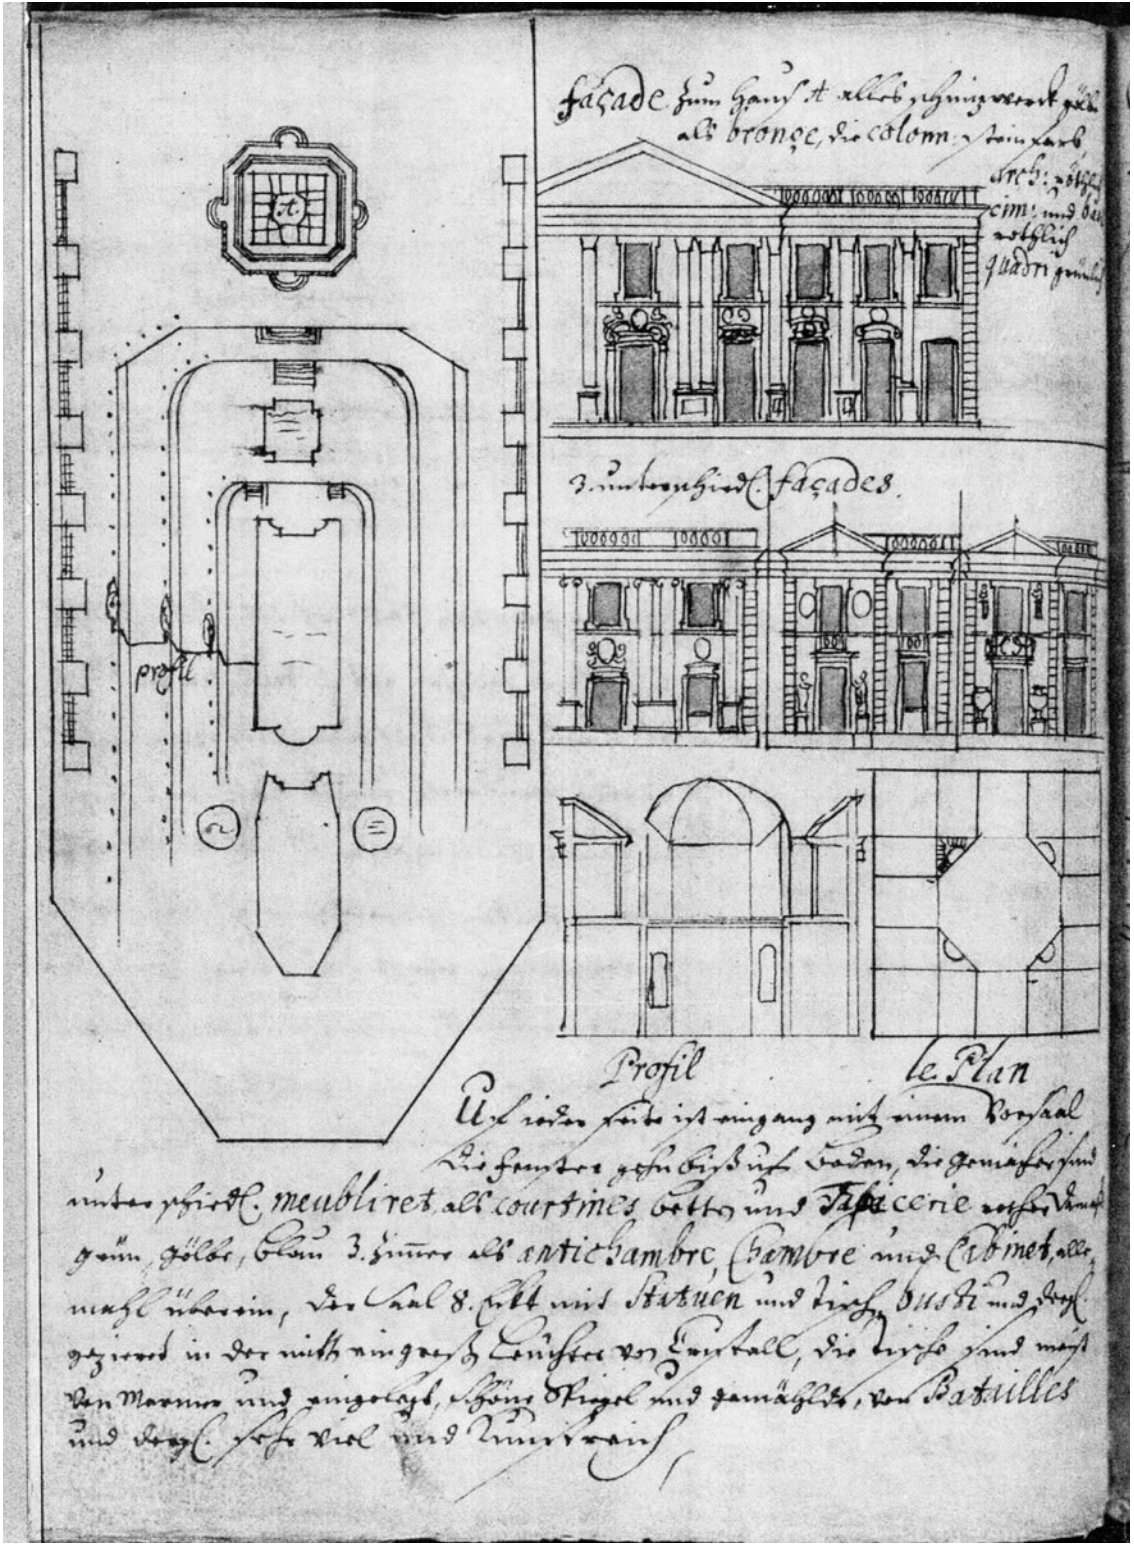 façade zum Hauß A alles schnizwerck gölb
als bronze, die colonn: steinfarb,
arch: röthl
cim: und bau
rothlich
quadri grünlich
A.
3. unterschiedl. façades.
profil
Profil
le Plan
Uf ieder seite ist eingang mit einem Vorsaal
die fenster gehn biß uf boden, die gemächer sind
unterschiedl. meubliret, als courtines bette und Tapicerie rother Damast
grün, gölbe, blau 3. Zimmer als antichambre, Chambre und Cabinet, alle
mahl überein, der Saal 8. Eckt mit Statuen und tisch, busti und dergl.
gezieret in der mitte ein groß Leüchter von Cristall, die tische sind meist
von Marmor und eingelegt, schöne Spiegel und gemählde, von Batailles
und dergl. sehr viel und Kunstreich